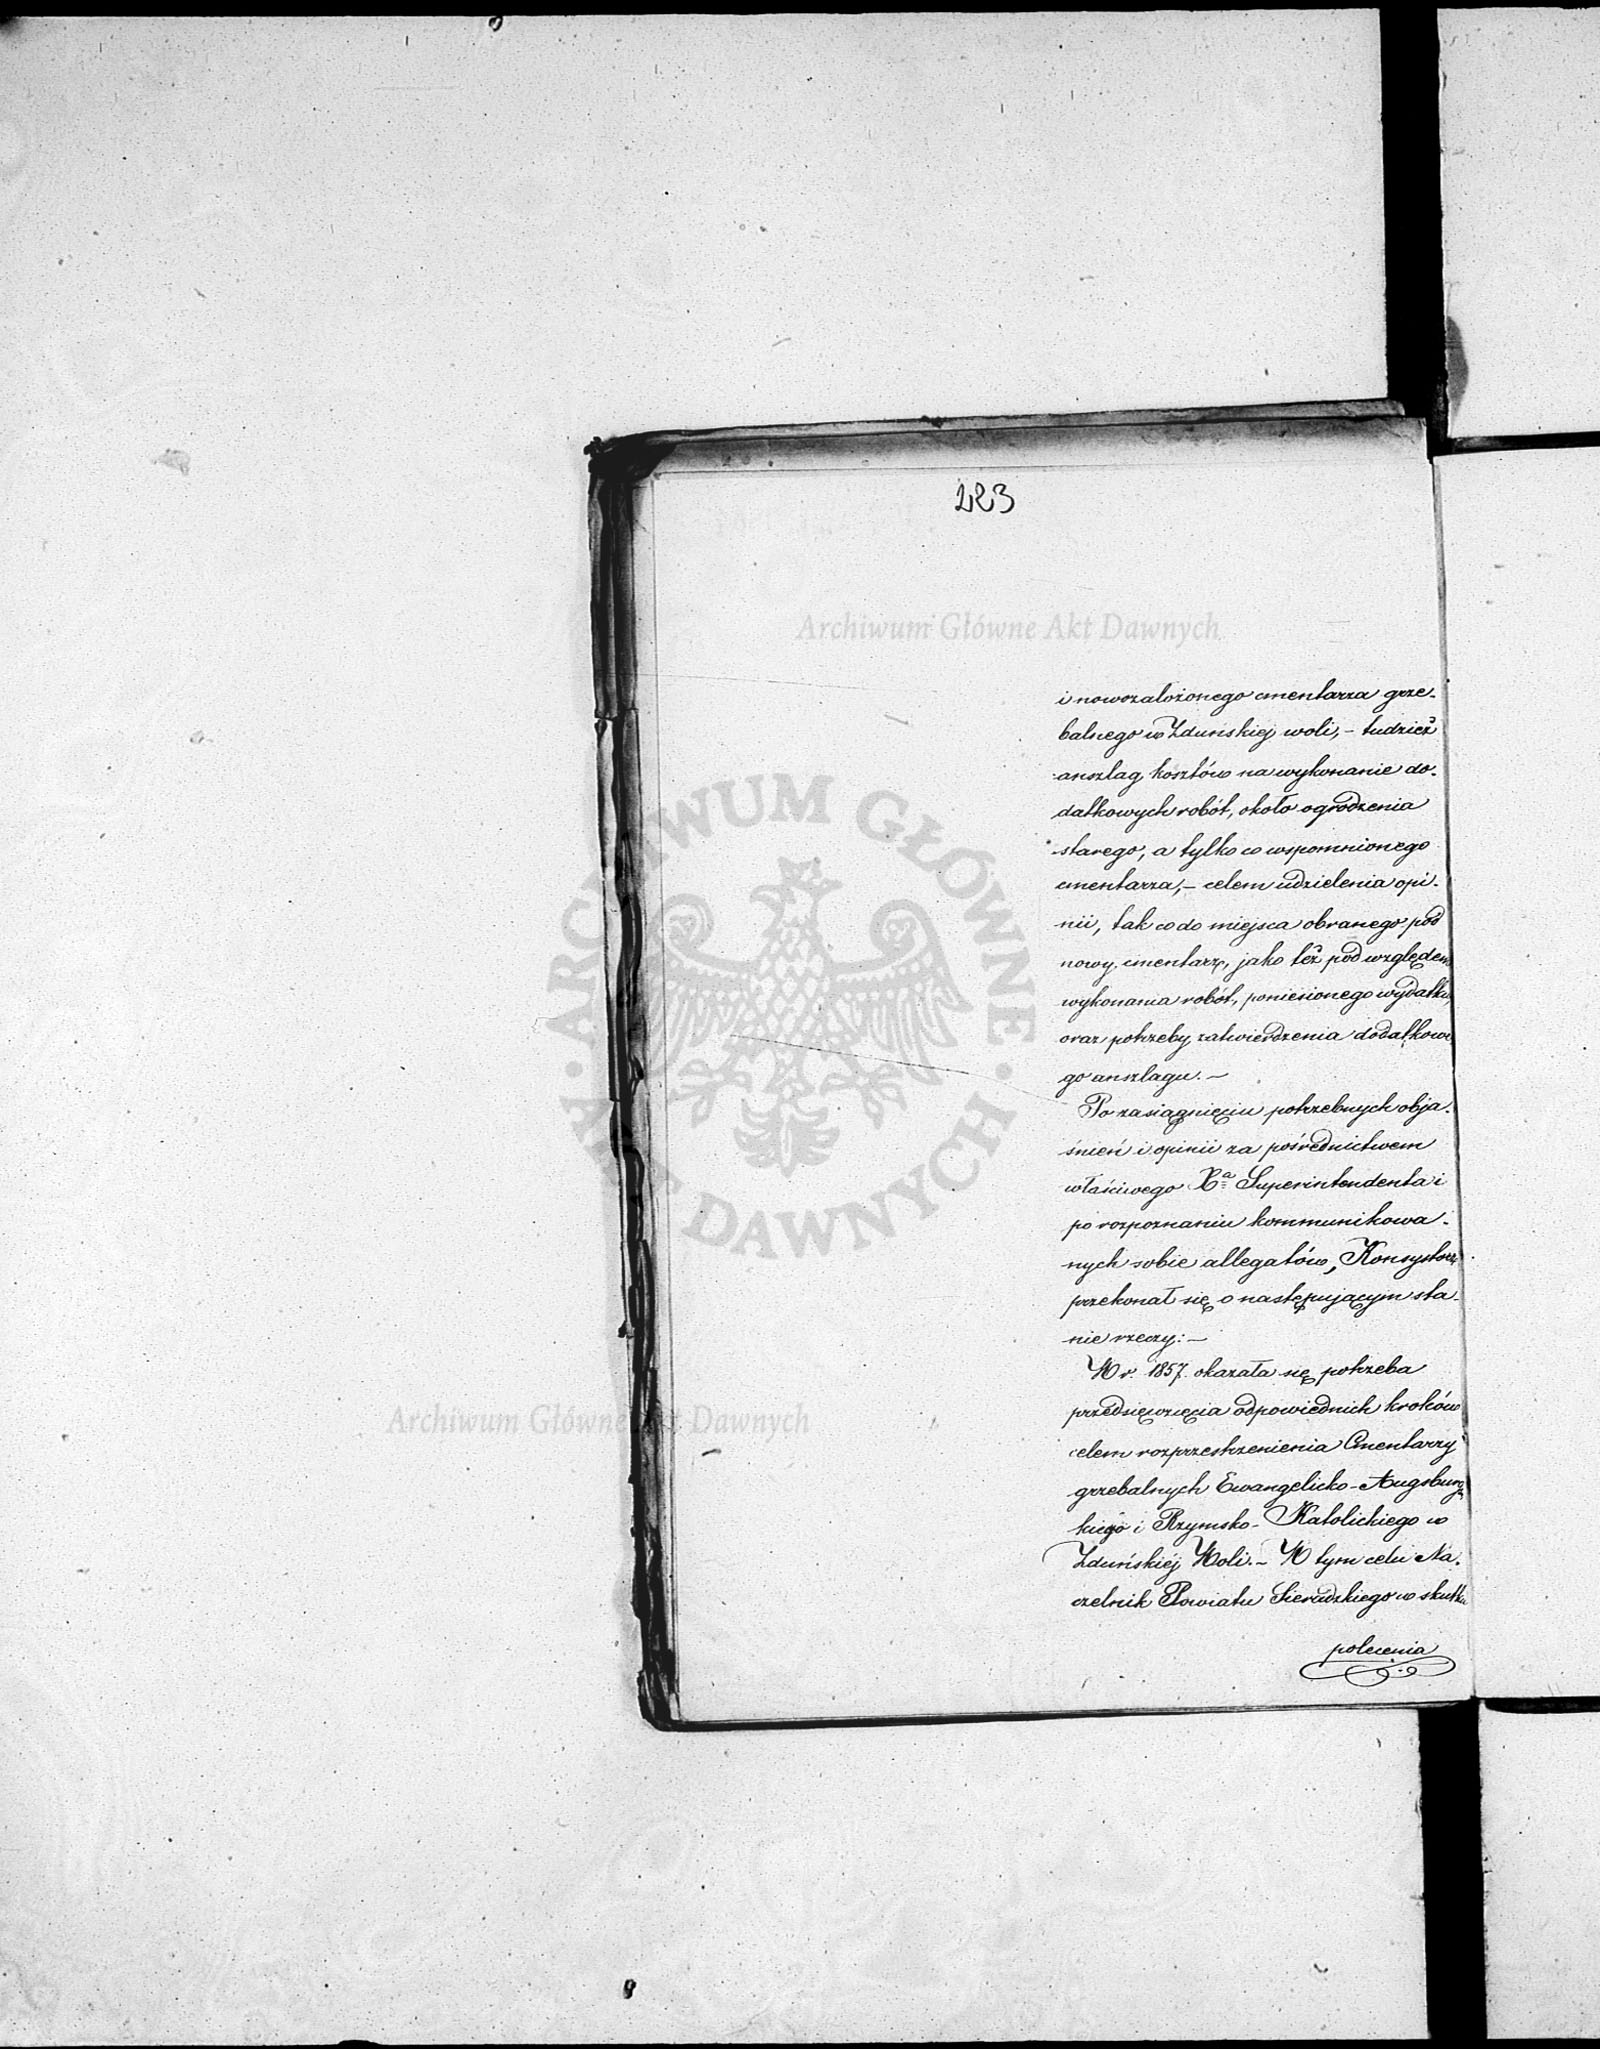 223
Archiwum Główne Akt Dawnych
i nowozałożonego cmentarza grze-
balnego w Zduńskiej woli, - tudzież
anszlag kosztów na wykonanie do-
datkowych robót, około ogrodzenia
starego, a tylko co wspomnionego
cmentarza, - celem udzielenia opi-
nii, tak co do miejsca obranego pod
nowy cmentarz, jako też pod względem
wykonania robót, poniesionego wydatku,
oraz potrzeby zatwierdzenia dodatkowe
go anszlagu. -
Po zasiągnięciu potrzebnych obja-
śnień i opinii za pośrednictwem
właściwego Xa Superintendenta i
po rozpoznaniu kommunikowa-
nych sobie allegatów, Konsystorz
przekonał się o następującym sta-
nie rzeczy: -
W r. 1857 okazała się potrzeba
przedsięwzięcia odpowiednich kroków
celem rozprzestrzenienia Cmentarzy
grzebalnych Ewangelicko-Augsburgs
kiego i Rzymsko-Katolickiego w
Zduńskiéj Woli. - W tym celu Na-
czelnik Powiatu Sieradzkiego w skutku
polecenia
ARCHIWUM GŁÓWNE AKT DAWNYCH
Archiwum Główne Akt Dawnych